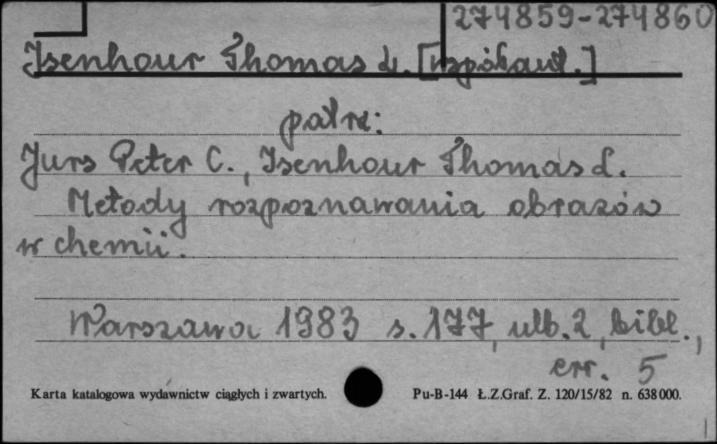 274859-274860
Isenhour Thomas L. [współaut.]
patrz:
Jurs Peter C., Isenhour Thomas L.
Metody rozpoznawania obrazów
w chemii.
Warszawa 1983 s. 177, ulb. 2, bibl.,
err. 5
Karta katalogowa wydawnictw ciągłych i zwartych. Pu-B-144 Ł.Z.Graf. Z. 120/15/82 n. 638000.